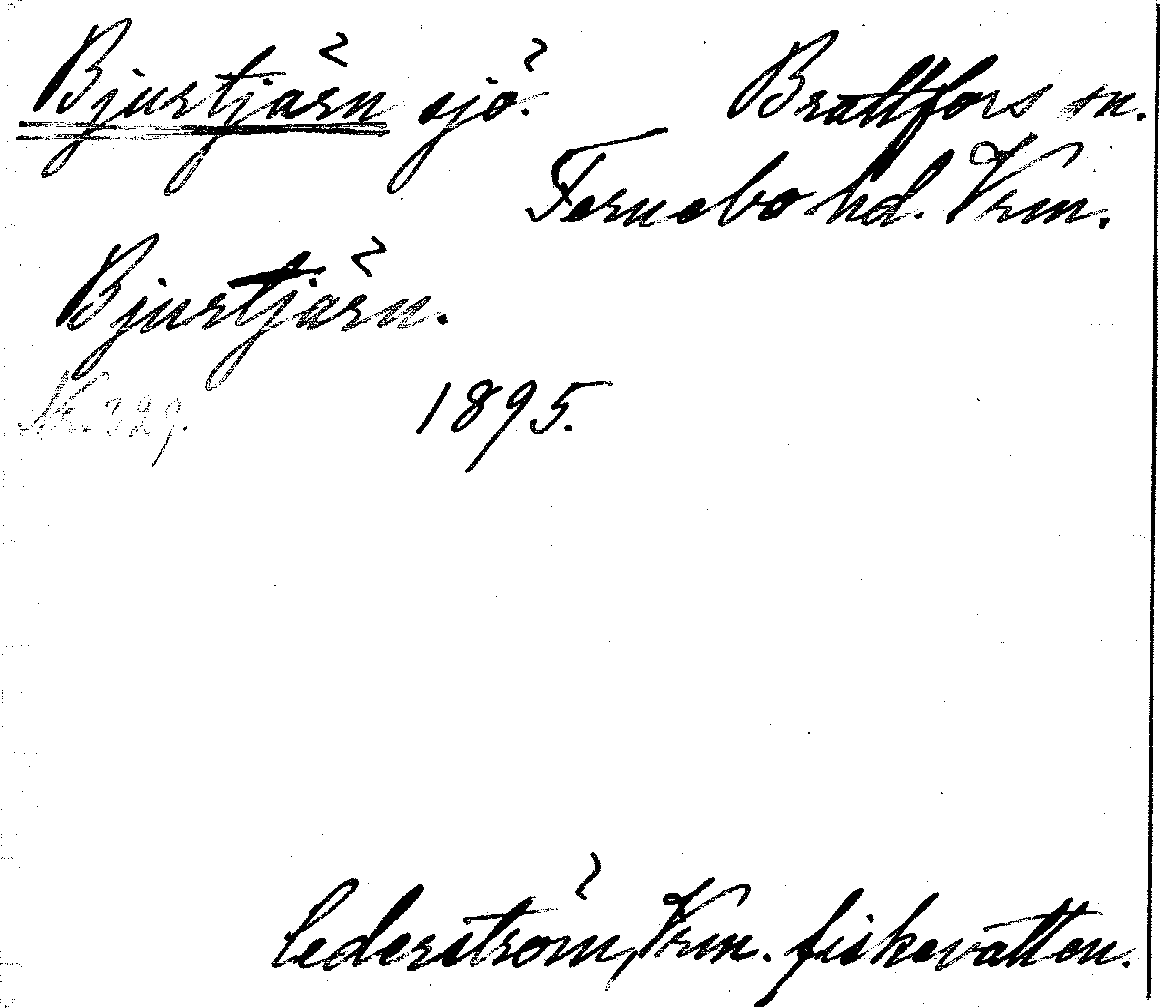 Bjurtjärn sjö. Brattfors sn.
Fernebo hd. Vrm.
Bjurtjärn.
Nr. 329. 1895.
Cederström, Vrm. fiskevatten.